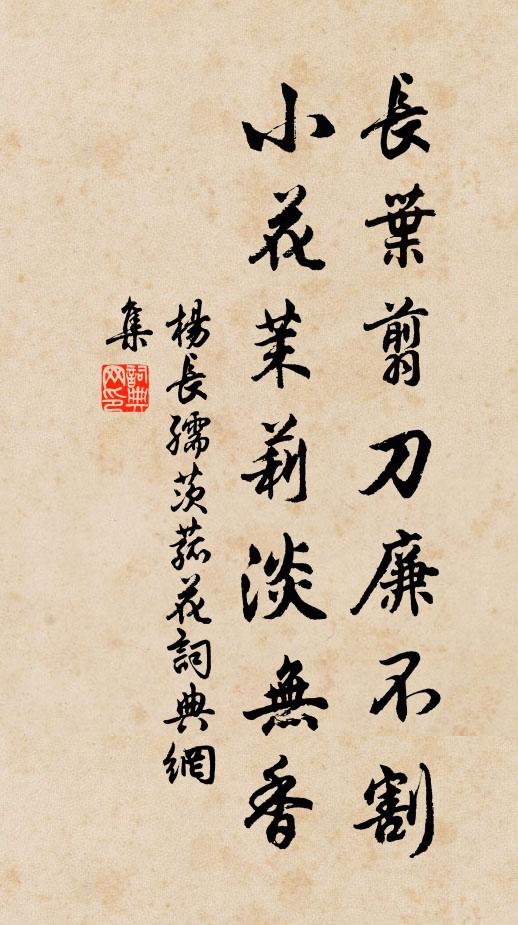 長葉翦刀廉不割
小花茉莉淡無香
楊長孺茨菰花詞典網
集
詞典
网印